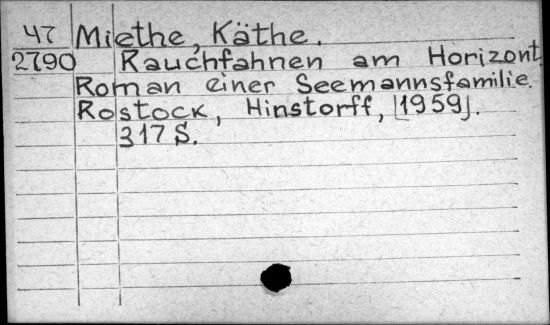 47 Miethe, Käthe.
2790 Rauchfahnen am Horizont.
Roman einer Seemannsfamilie.
Rostock, Hinstorff, [1959].
317 S.